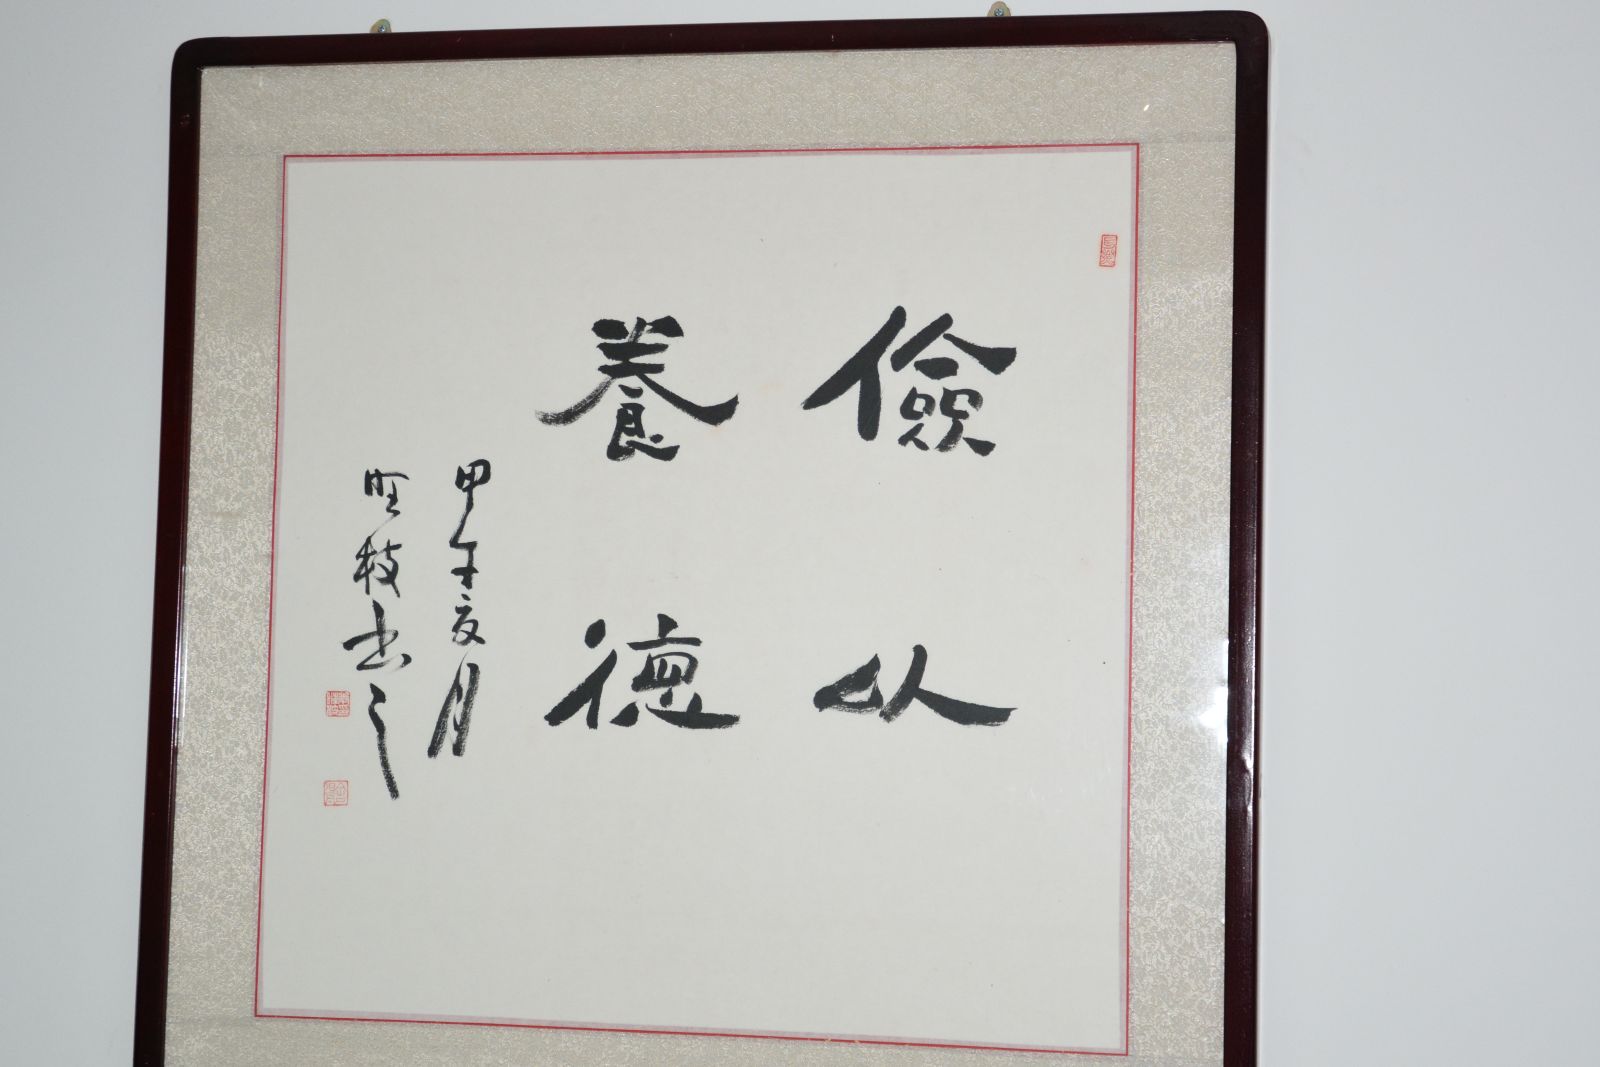 儉以
養德
甲午亥月
枝書之